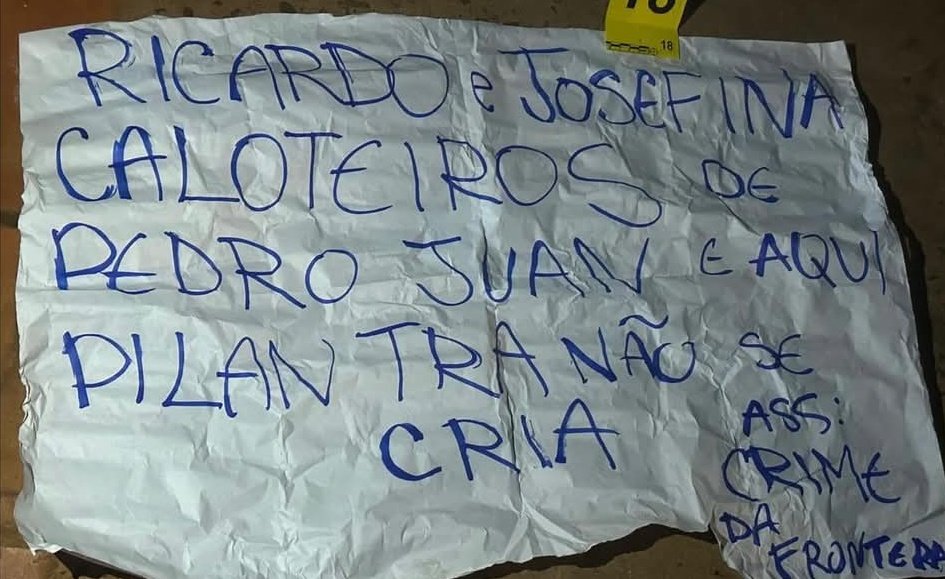 18
RICARDO e JOSEFINA
CALOTEIROS DE
PEDRO JUAN E AQUI
PILANTRA NÃO SE
CRIA
ASS:
CRIME
DA
FRONTEIRA